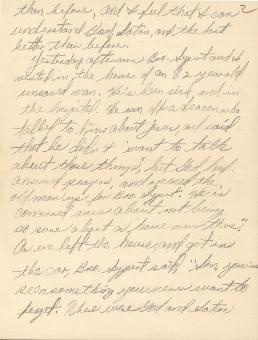 2
than before, and I feel that I can
understand God, Satan, and the lost
better than before.
Yesterday afternoon Bro. Sypert and I
were in the home of an 82 year old
unsaved man. He's been sick, and in
the hospital. He ran off a deacon who
talked to him about Jesus, and said
that he didn't "want to talk
about those things", but God had
answered prayers, and opened the
old man up for Bro. Sypert. He is
concerned now about not being
as sure about a home over there".
As we left the house and got in
the car, Bro. Sypert said, "Son, you've
seen something you never want to
forget. There were God and Satan